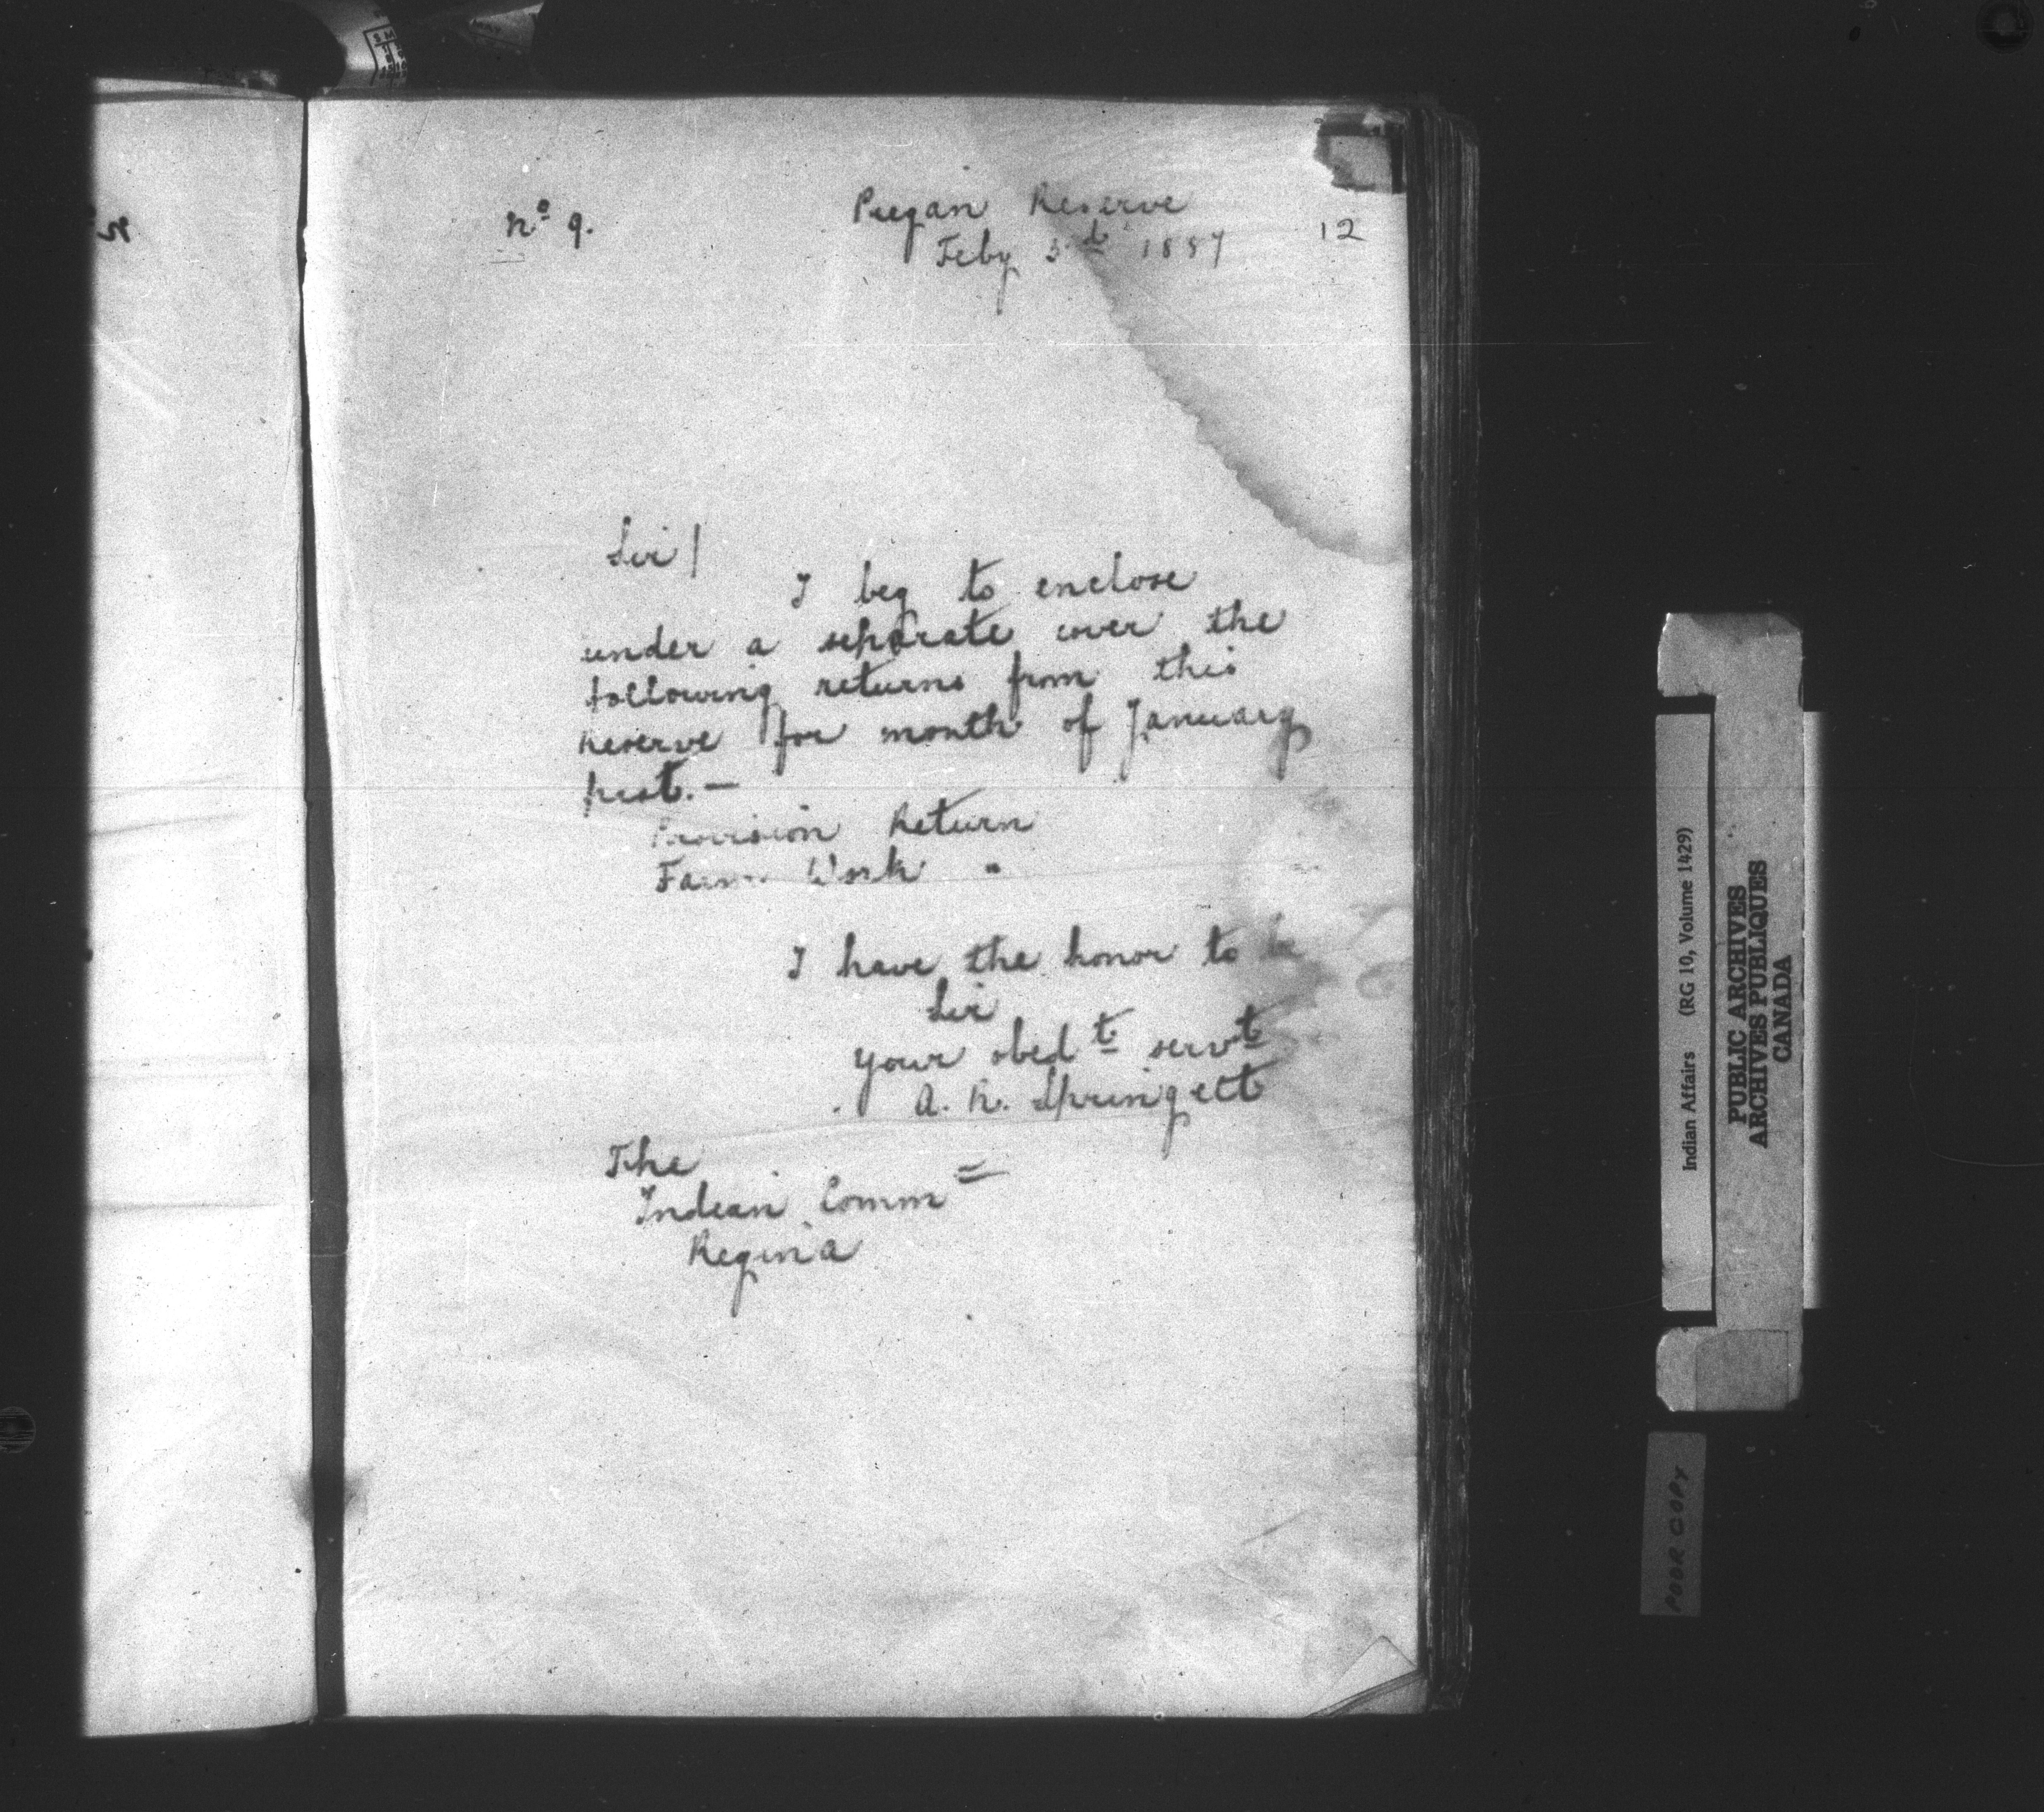 No 9.
Peegan Reserve
Feby 3d 1887
12
Sir /
I beg to enclose
under a separate cover the
following returns from this
Reserve for month of January
past. —
Provision Return
Farm Work "
I have the honor to be
Sir
your obedt servt
A. R. Springett
The
Indian Comm
Regina
Indian Affairs (RG 10, Volume 1429)
PUBLIC ARCHIVES
ARCHIVES PUBLIQUES
CANADA
POOR COPY